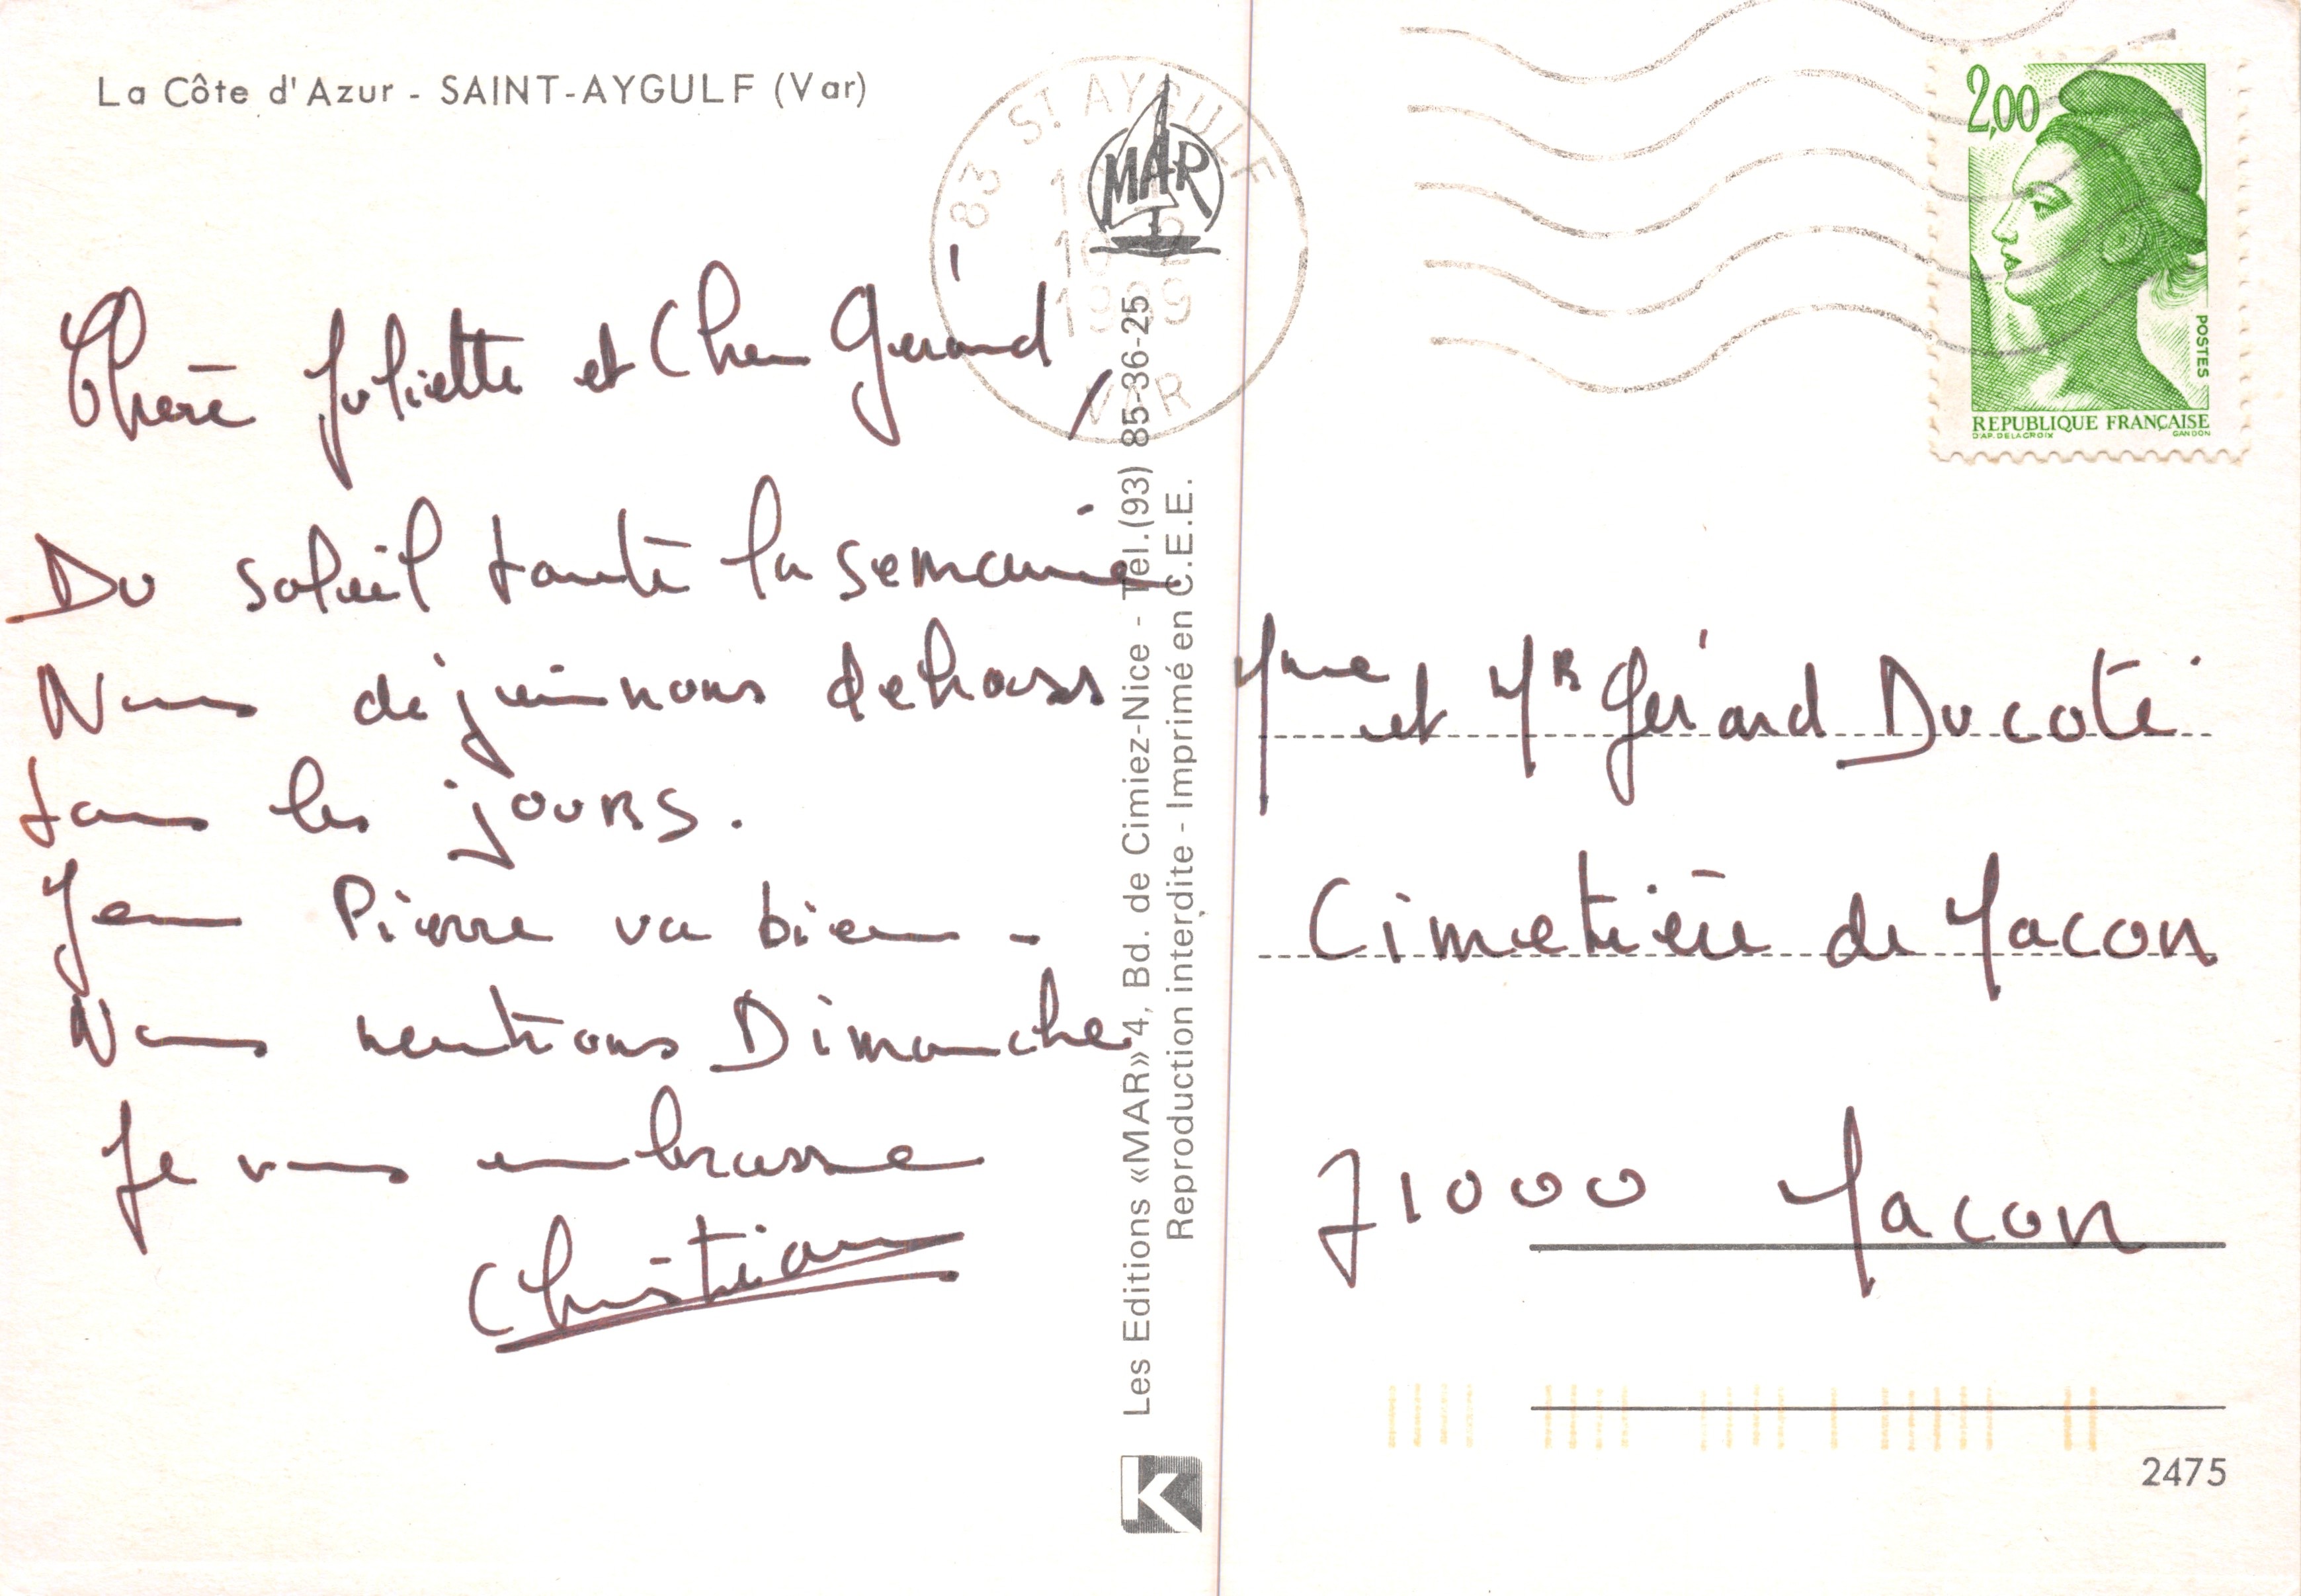 La Côte d'Azur - SAINT-AYGULF (Var)
Chère Juliette et Cher Gérard,
Du soleil toute la semaine
Nous déjeunons dehors
tous les jours.
Jean Pierre va bien -
Nous rentrons Dimanche
Je vous embrasse
Christian
83 ST AYGULF
1989
VAR
MAR
Les Editions «MAR» 4, Bd. de Cimiez-Nice - Tél.(93) 85-36-25
Reproduction interdite - Imprimé en C.E.E.
K
2,00
POSTES
REPUBLIQUE FRANÇAISE
D'AP. DELACROIX GANDON
Mme et MR Gérard Ducoté
Cimetière de Macon
71000 Macon
2475